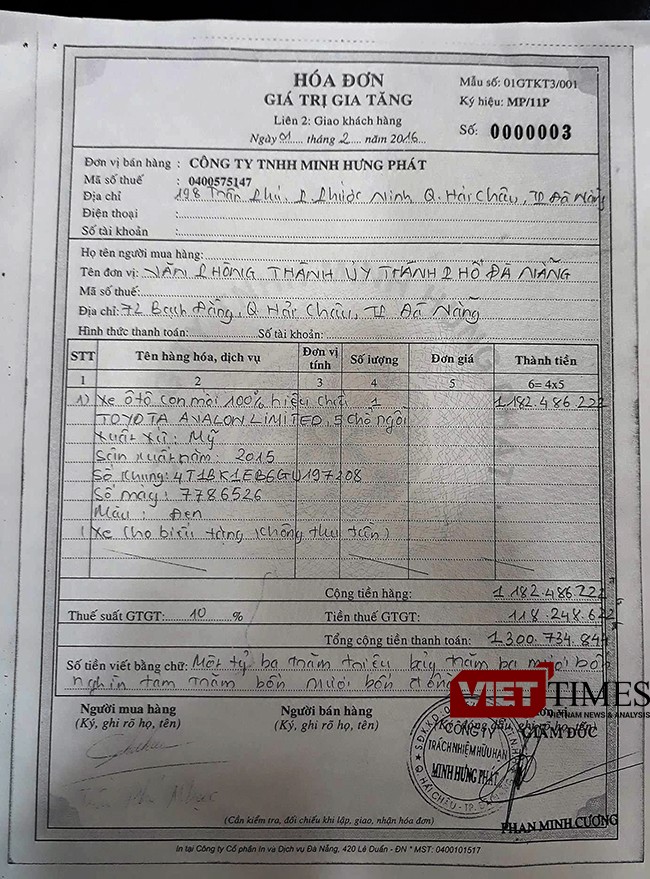 HÓA ĐƠN
GIÁ TRỊ GIA TĂNG
Liên 2: Giao khách hàng
Ngày 01 tháng 2 năm 2016
Mẫu số: 01GTKT3/001
Ký hiệu: MP/11P
Số: 0000003
Đơn vị bán hàng : CÔNG TY TNHH MINH HƯNG PHÁT
Mã số thuế : 0400575147
Địa chỉ : 198 Trần Phú, P. Phước Ninh Q. Hải Châu, TP Đà Nẵng
Điện thoại :
Số tài khoản :
Họ tên người mua hàng:
Tên đơn vị: VĂN PHÒNG THÀNH ỦY THÀNH PHỐ ĐÀ NẴNG
Mã số thuế:
Địa chỉ: 72 Bạch Đằng, Q Hải Châu, TP Đà Nẵng
Hình thức thanh toán: Số tài khoản:
STT Tên hàng hóa, dịch vụ Đơn vị tính Số lượng Đơn giá Thành tiền
1 2 3 4 5 6= 4x5
1) Xe ôtô con mới 100% hiệu chữ 1 1.182.486.222
TOYOTA AVALON LIMITED, 5 chỗ ngồi
Xuất xứ: Mỹ
Sản xuất năm: 2015
Số khung: 4T1BK1EB6GU197208
Số máy: 7786526
Màu: Đen
(Xe cho biếu tặng không thu tiền)
Cộng tiền hàng: 1.182.486.222
Thuế suất GTGT: 10 % Tiền thuế GTGT: 118.248.622
Tổng cộng tiền thanh toán: 1.300.734.844
Số tiền viết bằng chữ: Một tỷ ba trăm triệu bảy trăm ba mươi bốn
nghìn tám trăm bốn mươi bốn đồng
VIETTIMES
VIETNAM NEWS & ANALYSIS
Người mua hàng Người bán hàng
(Ký, ghi rõ họ, tên) (Ký, ghi rõ họ, tên)
GIÁM ĐỐC
CÔNG TY
TRÁCH NHIỆM HỮU HẠN
MINH HƯNG PHÁT
Q. HẢI CHÂU - TP. ĐÀ NẴNG
PHAN MINH CƯƠNG
(Cần kiểm tra, đối chiếu khi lập, giao, nhận hóa đơn)
In tại Công ty Cổ phần In và Dịch vụ Đà Nẵng, 420 Lê Duẩn - ĐN * MST: 0400101517